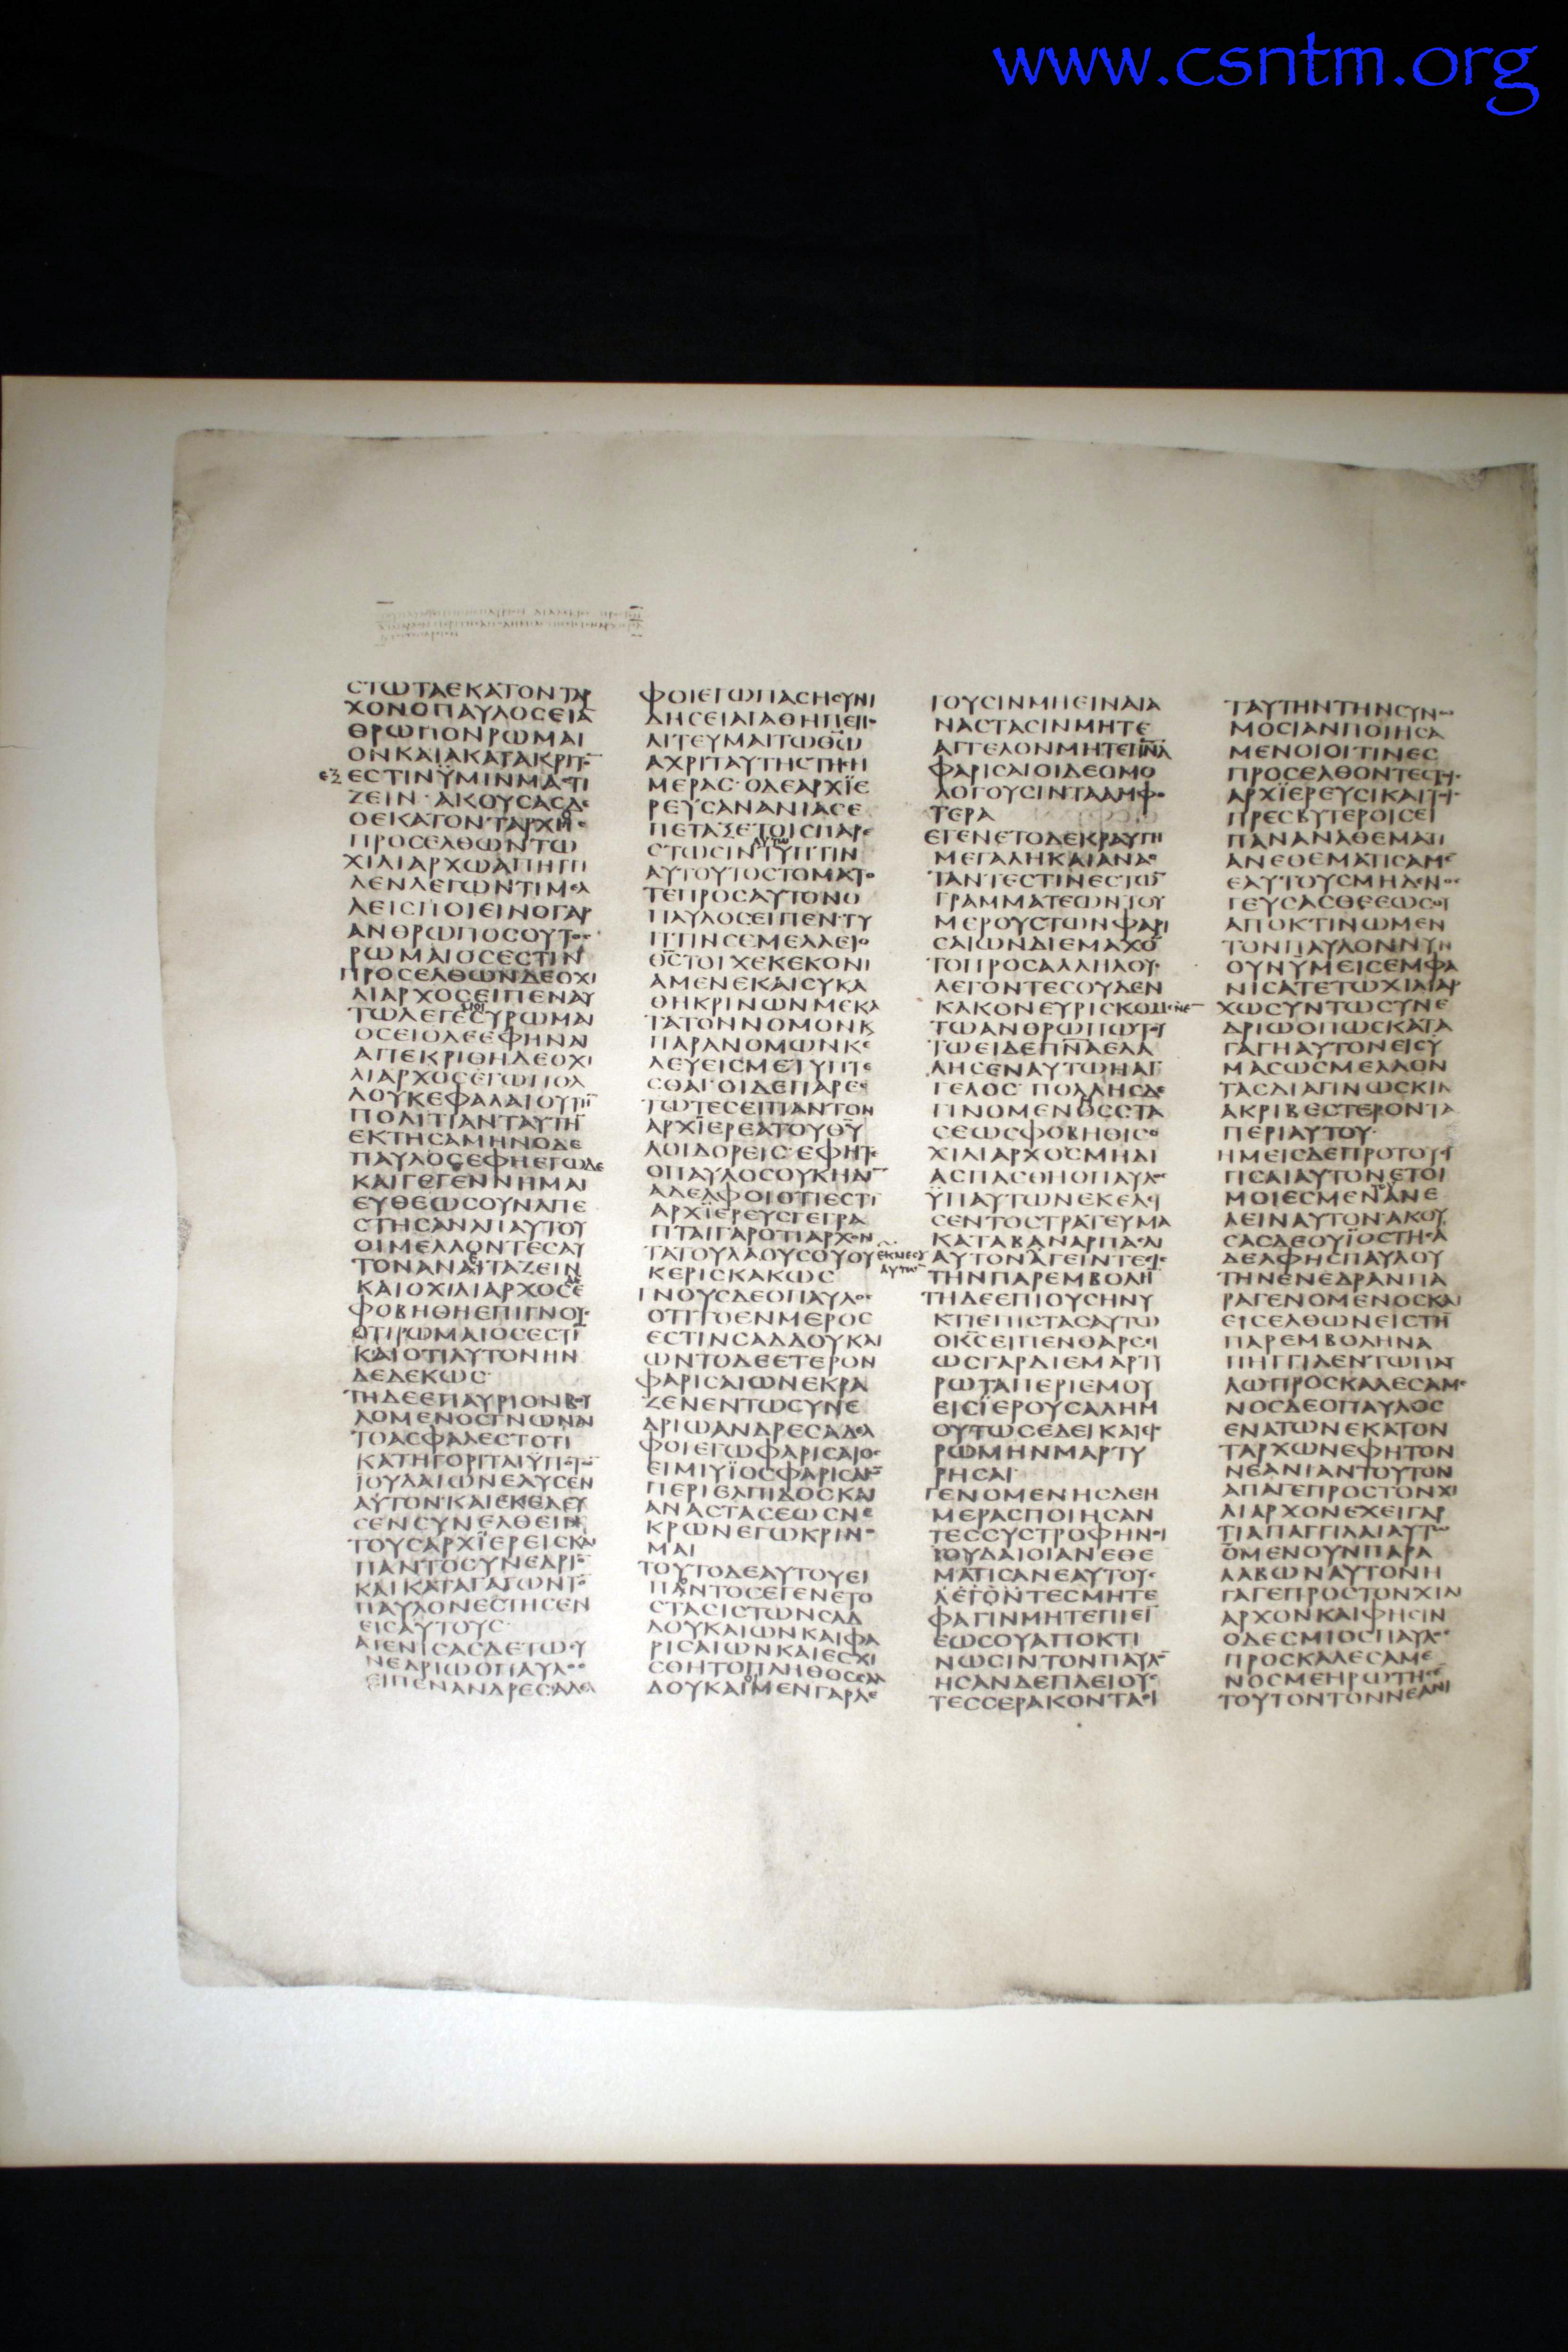 www.csntm.org
ϹΤΩΤΑΕΚΑΤΟΝΤΑΡ
ΧΟΝΟΠΑΥΛΟϹΕΙΑ
ΘΡΩΠΟΝΡΩΜΑΙ
ΟΝΚΑΙΑΚΑΤΑΚΡΙΤΟ̅
ΕΞ ΕϹΤΙΝΫΜΙΝΜΑϹΤΙ
ΖΕΙΝ·ΑΚΟΥϹΑϹΔΕ
ΟΕΚΑΤΟΝΤΑΡΧΗϹ
ΠΡΟϹΕΛΘΩΝΤΩ
ΧΙΛΙΑΡΧΩΑΠΗΓΓΙ
ΛΕΝΛΕΓΩΝΤΙΜΕΛ
ΛΕΙϹΠΟΙΕΙΝΟΓΑΡ
ΑΝΘΡΩΠΟϹΟΥΤΟϹ
ΡΩΜΑΙΟϹΕϹΤΙΝ
ΠΡΟϹΕΛΘΩΝΔΕΟΧΙ
ΛΙΑΡΧΟϹΕΙΠΕΝΑΥ
ΤΩΛΕΓΕϹΥΡΩΜΑΙ
ΟϹΕΙΟΔΕΕΦΗΝΑΙ
ΑΠΕΚΡΙΘΗΔΕΟΧΙ
ΛΙΑΡΧΟϹΕΓΩΠΟΛ
ΛΟΥΚΕΦΑΛΑΙΟΥΤΗ̅
ΠΟΛΙΤΙΑΝΤΑΥΤΗ̅
ΕΚΤΗϹΑΜΗΝΟΔΕ
ΠΑΥΛΟϹΕΦΗΕΓΩΔΕ
ΚΑΙΓΕΓΕΝΝΗΜΑΙ
ΕΥΘΕΩϹΟΥΝΑΠΕ
ϹΤΗϹΑΝΑΠΑΥΤΟΥ
ΟΙΜΕΛΛΟΝΤΕϹΑΥ
ΤΟΝΑΝΑΙΤΑΖΕΙΝ
ΚΑΙΟΧΙΛΙΑΡΧΟϹΕ
ΦΟΒΗΘΗΕΠΙΓΝΟΥϹ
ΟΤΙΡΩΜΑΙΟϹΕϹΤΙ̅
ΚΑΙΟΤΙΑΥΤΟΝΗΝ
ΔΕΔΕΚΩϹ
ΤΗΔΕΕΠΑΥΡΙΟΝΒΟΥ
ΛΟΜΕΝΟϹΓΝΩΝΑΙ
ΤΟΑϹΦΑΛΕϹΤΟΤΙ
ΚΑΤΗΓΟΡΙΤΑΙΫΠΟΤΩ̅
ΙΟΥΔΑΙΩΝΕΛΥϹΕΝ
ΑΥΤΟΝ·ΚΑΙΕΚΕΛΕΥ
ϹΕΝϹΥΝΕΛΘΕΙΝ
ΤΟΥϹΑΡΧΪΕΡΕΙϹΚΑΙ
ΠΑΝΤΟϹΥΝΕΔΡΙΟ̅
ΚΑΙΚΑΤΑΓΑΓΩΝΤΟ̅
ΠΑΥΛΟΝΕϹΤΗϹΕΝ
ΕΙϹΑΥΤΟΥϹ·
ΑΤΕΝΙϹΑϹΔΕΤΩϹΥ
ΝΕΔΡΙΩΟΠΑΥΛΟϹ
ΕΙΠΕΝΑΝΔΡΕϹΑΔΕΛ
ΦΟΙΕΓΩΠΑϹΗϹΥΝΙ
ΔΗϹΕΙΑΓΑΘΗΠΕΠΟ
ΛΙΤΕΥΜΑΙΤΩΘ̅Ω̅
ΑΧΡΙΤΑΥΤΗϹΤΗϹΗ
ΜΕΡΑϹ·ΟΔΕΑΡΧΪΕ
ΡΕΥϹΑΝΑΝΙΑϹΕ
ΠΕΤΑΞΕΤΟΙϹΠΑΡΕ
ϹΤΩϹΙΝΤΥΠΤΙΝ
ΑΥΤΟΥΤΟϹΤΟΜΑΤΟ
ΤΕΠΡΟϹΑΥΤΟΝΟ
ΠΑΥΛΟϹΕΙΠΕΝΤΥ
ΠΤΙΝϹΕΜΕΛΛΕΙΟ
Θ̅Ϲ̅ΤΟΙΧΕΚΕΚΟΝΙ
ΑΜΕΝΕΚΑΙϹΥΚΑ
ΘΗΚΡΙΝΩΝΜΕΚΑ
ΤΑΤΟΝΝΟΜΟΝΚ
ΠΑΡΑΝΟΜΩΝΚΕ
ΛΕΥΕΙϹΜΕΤΥΠΤΕ
ϹΘΑΙ·ΟΙΔΕΠΑΡΕϹ
ΤΩΤΕϹΕΙΠΑΝΤΟΝ
ΑΡΧΪΕΡΕΑΤΟΥΘ̅Υ̅
ΛΟΙΔΟΡΕΙϹ·ΕΦΗΤΕ
ΟΠΑΥΛΟϹΟΥΚΗΔΙ̅
ΑΔΕΛΦΟΙΟΤΙΕϹΤΙ
ΑΡΧΪΕΡΕΥϹΓΕΓΡΑ
ΠΤΑΙΓΑΡΟΤΙΑΡΧΟΝ
ΤΑΤΟΥΛΑΟΥϹΟΥΟΥΚ
ΚΕΡΙϹΚΑΚΩϹ
ΓΝΟΥϹΔΕΟΠΑΥΛΟϹ
ΟΤΙΤΟΕΝΜΕΡΟϹ
ΕϹΤΙΝϹΑΔΔΟΥΚΑΙ
ΩΝΤΟΔΕΕΤΕΡΟΝ
ΦΑΡΙϹΑΙΩΝΕΚΡΑ
ΖΕΝΕΝΤΩϹΥΝΕ
ΔΡΙΩΑΝΔΡΕϹΑΔΕΛ
ΦΟΙΕΓΩΦΑΡΙϹΑΙΟϹ
ΕΙΜΙΥΪΟϹΦΑΡΙϹΑΙΩ̅
ΠΕΡΙΕΛΠΙΔΟϹΚΑΙ
ΑΝΑϹΤΑϹΕΩϹΝΕ
ΚΡΩΝΕΓΩΚΡΙΝΟ
ΜΑΙ
ΤΟΥΤΟΔΕΑΥΤΟΥΕΙ
ΠΑΝΤΟϹΕΓΕΝΕΤΟ
ϹΤΑϹΙϹΤΩΝϹΑΔ
ΔΟΥΚΑΙΩΝΚΑΙΦΑ
ΡΙϹΑΙΩΝΚΑΙΕϹΧΙ
ϹΘΗΤΟΠΛΗΘΟϹϹΑΔ
ΔΟΥΚΑΙΜΕΝΓΑΡΛΕ
ΓΟΥϹΙΝΜΗΕΙΝΑΙΑ
ΝΑϹΤΑϹΙΝΜΗΤΕ
ΑΓΓΕΛΟΝΜΗΤΕΠ̅Ν̅Α̅
ΦΑΡΙϹΑΙΟΙΔΕΟΜΟ
ΛΟΓΟΥϹΙΝΤΑΑΜΦΟ
ΤΕΡΑ
ΕΓΕΝΕΤΟΔΕΚΡΑΥΓΗ
ΜΕΓΑΛΗΚΑΙΑΝΑϹ
ΤΑΝΤΕϹΤΙΝΕϹΤΩ̅
ΓΡΑΜΜΑΤΕΩΝΤΟΥ
ΜΕΡΟΥϹΤΩΝΦΑΡΙ
ϹΑΙΩΝΔΙΕΜΑΧΟ̅
ΤΟΠΡΟϹΑΛΛΗΛΟΥϹ
ΛΕΓΟΝΤΕϹΟΥΔΕΝ
ΚΑΚΟΝΕΥΡΙϹΚΩΜΕ̅
ΤΩΑΝΘΡΩΠΩΤΟΥ
ΤΩΕΙΔΕΠ̅Ν̅Α̅ΕΛΑ
ΛΗϹΕΝΑΥΤΩΗΑΓ
ΓΕΛΟϹ·ΠΟΛΛΗϹΔΕ
ΓΙΝΟΜΕΝΟϹϹΤΑ
ϹΕΩϹΦΟΒΗΘΙϹΟ
ΧΙΛΙΑΡΧΟϹΜΗΔΙ
ΑϹΠΑϹΘΗΟΠΑΥΛΟϹ
ΫΠΑΥΤΩΝΕΚΕΛΕΥ
ϹΕΝΤΟϹΤΡΑΤΕΥΜΑ
ΚΑΤΑΒΑΝΑΡΠΑϹΑΙ
ΕΚΜΕϹΟΥ ΑΥΤΩ̅ ΑΥΤΟΝΑΓΕΙΝΤΕΕΙϹ
ΤΗΝΠΑΡΕΜΒΟΛΗ̅
ΤΗΔΕΕΠΙΟΥϹΗΝΥ
ΚΤΙΕΠΙϹΤΑϹΑΥΤΩ
ΟΚ̅Ϲ̅ΕΙΠΕΝΘΑΡϹΕΙ
ΩϹΓΑΡΔΙΕΜΑΡΤΥ
ΡΩΤΑΠΕΡΙΕΜΟΥ
ΕΙϹΪΕΡΟΥϹΑΛΗΜ
ΟΥΤΩϹΕΔΕΙΚΑΙΕΙϹ
ΡΩΜΗΝΜΑΡΤΥ
ΡΗϹΑΙ
ΓΕΝΟΜΕΝΗϹΔΕΗ
ΜΕΡΑϹΠΟΙΗϹΑΝ
ΤΕϹϹΥϹΤΡΟΦΗΝΟΙ
ΙΟΥΔΑΙΟΙΑΝΕΘΕ
ΜΑΤΙϹΑΝΕΑΥΤΟΥϹ
ΛΕΓΟΝΤΕϹΜΗΤΕ
ΦΑΓΙΝΜΗΤΕΠΙΕΙ̅
ΕΩϹΟΥΑΠΟΚΤΙ
ΝΩϹΙΝΤΟΝΠΑΥΛΟ̅
ΗϹΑΝΔΕΠΛΕΙΟΥϹ
ΤΕϹϹΕΡΑΚΟΝΤΑΟΙ
ΤΑΥΤΗΝΤΗΝϹΥΝΩ
ΜΟϹΙΑΝΠΟΙΗϹΑ
ΜΕΝΟΙΟΙΤΙΝΕϹ
ΠΡΟϹΕΛΘΟΝΤΕϹΤΟΙϹ
ΑΡΧΪΕΡΕΥϹΙΚΑΙΤΟΙϹ
ΠΡΕϹΒΥΤΕΡΟΙϹΕΙ
ΠΑΝΑΝΑΘΕΜΑΤΙ
ΑΝΕΘΕΜΑΤΙϹΑΜΕ
ΕΑΥΤΟΥϹΜΗΔΕΝΟϹ
ΓΕΥϹΑϹΘΕΕΩϹΟΥ
ΑΠΟΚΤΙΝΩΜΕΝ
ΤΟΝΠΑΥΛΟΝΝΥΝ
ΟΥΝΫΜΕΙϹΕΜΦΑ
ΝΙϹΑΤΕΤΩΧΙΛΙΑΡ
ΧΩϹΥΝΤΩϹΥΝΕ
ΔΡΙΩΟΠΩϹΚΑΤΑ
ΓΑΓΗΑΥΤΟΝΕΙϹΥ
ΜΑϹΩϹΜΕΛΛΟΝ
ΤΑϹΔΙΑΓΙΝΩϹΚΙΝ
ΑΚΡΙΒΕϹΤΕΡΟΝΤΑ
ΠΕΡΙΑΥΤΟΥ·
ΗΜΕΙϹΔΕΠΡΟΤΟΥΕΓ
ΓΙϹΑΙΑΥΤΟΝΕΤΟΙ
ΜΟΙΕϹΜΕΝΑΝΕ
ΛΕΙΝΑΥΤΟΝ·ΑΚΟΥ
ϹΑϹΔΕΟΥΪΟϹΤΗϹΑ
ΔΕΛΦΗϹΠΑΥΛΟΥ
ΤΗΝΕΝΕΔΡΑΝΠΑ
ΡΑΓΕΝΟΜΕΝΟϹΚΑΙ
ΕΙϹΕΛΘΩΝΕΙϹΤΗ̅
ΠΑΡΕΜΒΟΛΗΝΑ
ΠΗΓΓΙΛΕΝΤΩΠΑΥ
ΛΩΠΡΟϹΚΑΛΕϹΑΜΕ
ΝΟϹΔΕΟΠΑΥΛΟϹ
ΕΝΑΤΩΝΕΚΑΤΟΝ
ΤΑΡΧΩΝΕΦΗΤΟΝ
ΝΕΑΝΙΑΝΤΟΥΤΟΝ
ΑΠΑΓΕΠΡΟϹΤΟΝΧΙ
ΛΙΑΡΧΟΝΕΧΕΙΓΑΡ
ΤΙΑΠΑΓΓΙΛΑΙΑΥΤΩ
ΟΜΕΝΟΥΝΠΑΡΑ
ΛΑΒΩΝΑΥΤΟΝΗ
ΓΑΓΕΠΡΟϹΤΟΝΧΙΛΙ
ΑΡΧΟΝΚΑΙΦΗϹΙΝ
ΟΔΕϹΜΙΟϹΠΑΥΛΟϹ
ΠΡΟϹΚΑΛΕϹΑΜΕ
ΝΟϹΜΕΗΡΩΤΗϹΕ
ΤΟΥΤΟΝΤΟΝΝΕΑΝΙ